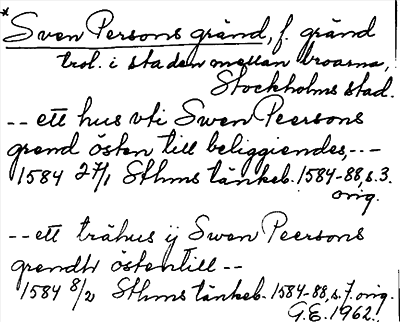 * Sven Persons gränd, f. gränd
trol. i staden mellan broarna,
Stockholms stad.
-- ett hus vti Swen Peersons
grend östen till beliggiendes, --
1584 27/1 Sthms tänkeb. 1584-88, s. 3.
orig.
-- ett trähus ij Swen Peersons
grendh östentill --
1584 8/2 Sthms tänkeb. 1584-88, s. 7. orig.
G.E. 1962.